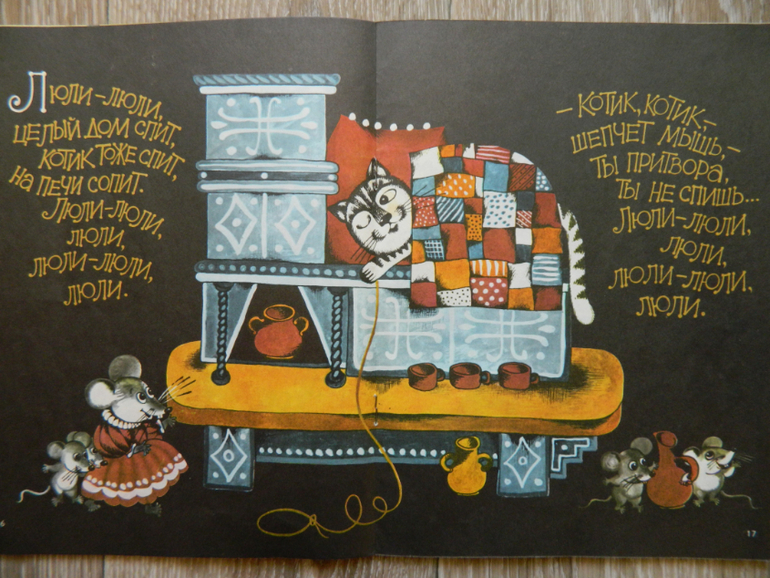 Люли-люли,
целый дом спит,
котик тоже спит,
на печи сопит.
Люли-люли,
люли,
люли-люли,
люли.
— Котик, котик, —
шепчет мышь, —
ты притвора,
ты не спишь...
Люли-люли,
люли,
люли-люли,
люли.
6
17